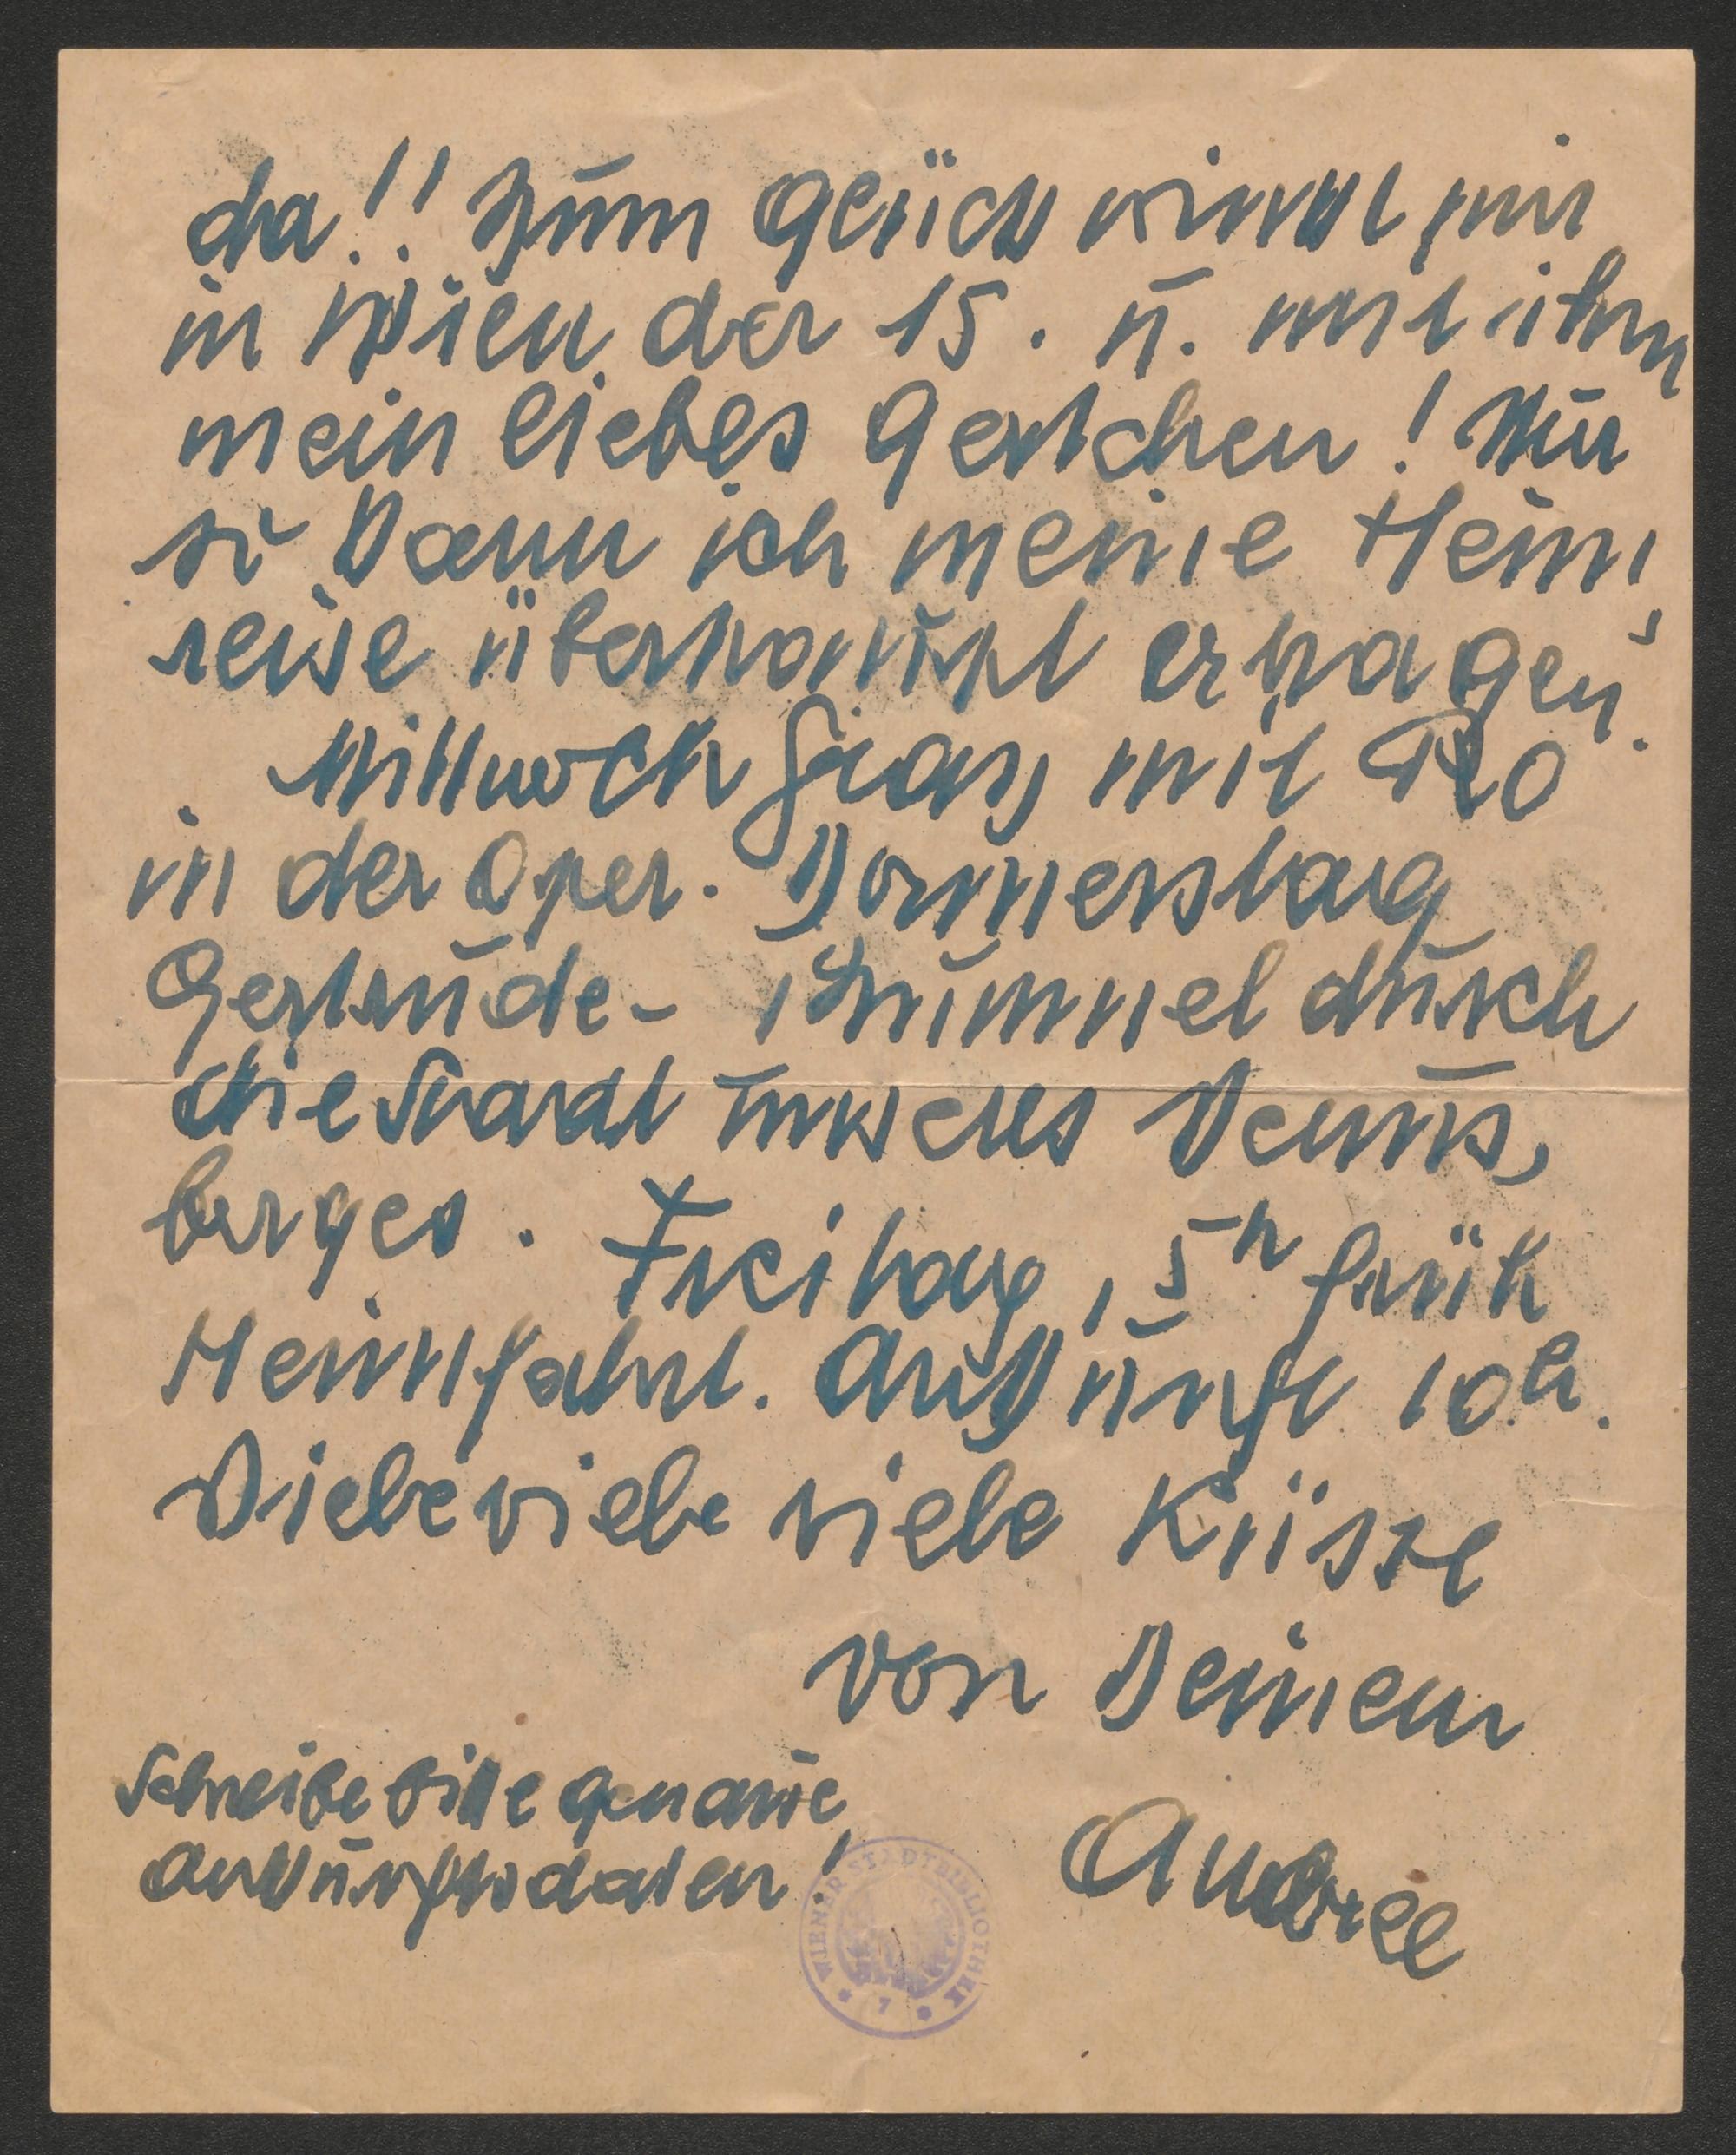 da!! Zum Glück winkt mir
in Wien der 15. u. mit ihm
mein liebes Gertchen! Nur
so kann ich meine Heim,
reise überhaupt ertragen.
Mittwoch Graz mit Ro
in der Oper. Donnerstag
Gertrude- Bummel durch
die Stadt unseres Venus,
berges. Freitag, 5h früh
Heimfahrt. Ankunft 10h.
Viele viele viele Küsse
von Deinem
Schreibe bitte genaue
Ankunftsdaten!
Andree
WIENER STADTBIBLIOTHEK
7